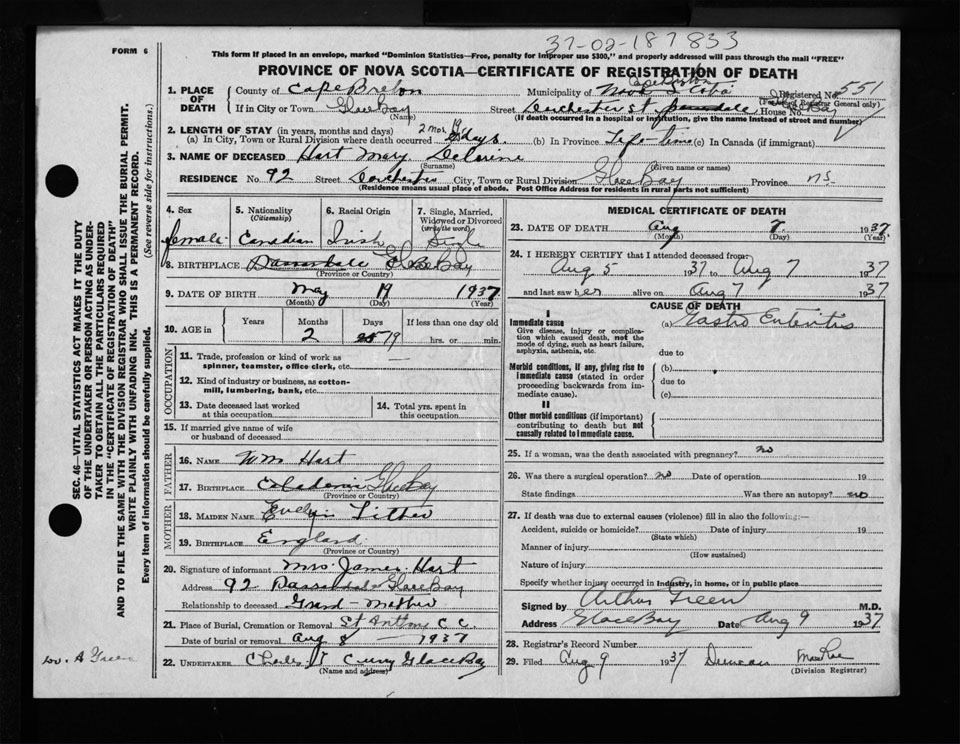 37-02-187833
FORM 6
This form if placed in an envelope, marked "Dominion Statistics—Free, penalty for improper use $300," and properly addressed will pass through the mail "FREE"
PROVINCE OF NOVA SCOTIA—CERTIFICATE OF REGISTRATION OF DEATH
1. PLACE OF DEATH County of Cape Breton Municipality of Cape Breton Nova Scotia Registered No. 551
(For use of Registrar General only)
If in City or Town Glace Bay Street Dorchester St. House No.
(Name) (If death occurred in a hospital or institution, give the name instead of street and number)
2. LENGTH OF STAY (in years, months and days)
(a) In City, Town or Rural Division where death occurred 2 mos 19 days. (b) In Province Life time (c) In Canada (if immigrant)
3. NAME OF DECEASED Hart Mary
(Surname) (Given name or names)
RESIDENCE No. 92 Street Dorchester City, Town or Rural Division Glace Bay Province NS
(Residence means usual place of abode. Post Office Address for residents in rural parts not sufficient)
4. Sex female
5. Nationality (Citizenship) Canadian
6. Racial Origin Irish
7. Single, Married, Widowed or Divorced (write the word) Single
8. BIRTHPLACE Glace Bay
(Province or County)
9. DATE OF BIRTH May 19 1937
(Month) (Day) (Year)
10. AGE in Years Months 2 Days 19 If less than one day old hrs. or min.
OCCUPATION
11. Trade, profession or kind of work as spinner, teamster, office clerk, etc. —
12. Kind of industry or business, as cotton-mill, lumbering, bank, etc.
13. Date deceased last worked at this occupation
14. Total yrs. spent in this occupation
15. If married give name of wife or husband of deceased
FATHER
16. NAME Wm Hart
17. BIRTHPLACE Glace Bay
(Province or County)
MOTHER
18. MAIDEN NAME Evelyn
19. BIRTHPLACE England
(Province or County)
20. Signature of informant Mrs. James Hart
Address 92 Glace Bay
Relationship to deceased Grand-Mother
21. Place of Burial, Cremation or Removal St Anthony C.C.
Date of burial or removal Aug 8 — 1937
22. UNDERTAKER Charles Curry Glace Bay
(Name and address)
MEDICAL CERTIFICATE OF DEATH
23. DATE OF DEATH Aug 7. 1937
(Month) (Day) (Year)
24. I HEREBY CERTIFY that I attended deceased from:
Aug 5 1937 to Aug 7 1937
and last saw her alive on Aug 7 1937
CAUSE OF DEATH
I
Immediate cause (a) Gastro Enteritis
Give disease, injury or complication which caused death, not the mode of dying, such as heart failure, asphyxia, asthenia, etc.
due to
Morbid conditions, if any, giving rise to immediate cause (stated in order proceeding backwards from immediate cause).
(b)
due to
(c)
II
Other morbid conditions (if important) contributing to death but not causally related to immediate cause.
25. If a woman, was the death associated with pregnancy? no
26. Was there a surgical operation? no Date of operation 19
State findings Was there an autopsy? no
27. If death was due to external causes (violence) fill in also the following:—
Accident, suicide or homicide? Date of injury 19
(State which)
Manner of injury
(How sustained)
Nature of injury
Specify whether injury occurred in industry, in home, or in public place
Signed by Arthur Green M.D.
Address Glace Bay Date Aug 9 1937
28. Registrar's Record Number
29. Filed Aug 9 1937 Duncan MacRae
(Division Registrar)
SEC. 46—VITAL STATISTICS ACT MAKES IT THE DUTY
OF THE UNDERTAKER OR PERSON ACTING AS UNDER-
TAKER TO OBTAIN ALL THE PARTICULARS REQUIRED
IN THE "CERTIFICATE OF REGISTRATION OF DEATH"
AND TO FILE THE SAME WITH THE DIVISION REGISTRAR WHO SHALL ISSUE THE BURIAL PERMIT.
WRITE PLAINLY WITH UNFADING INK. THIS IS A PERMANENT RECORD.
Every item of information should be carefully supplied. (See reverse side for instructions.)
A Green